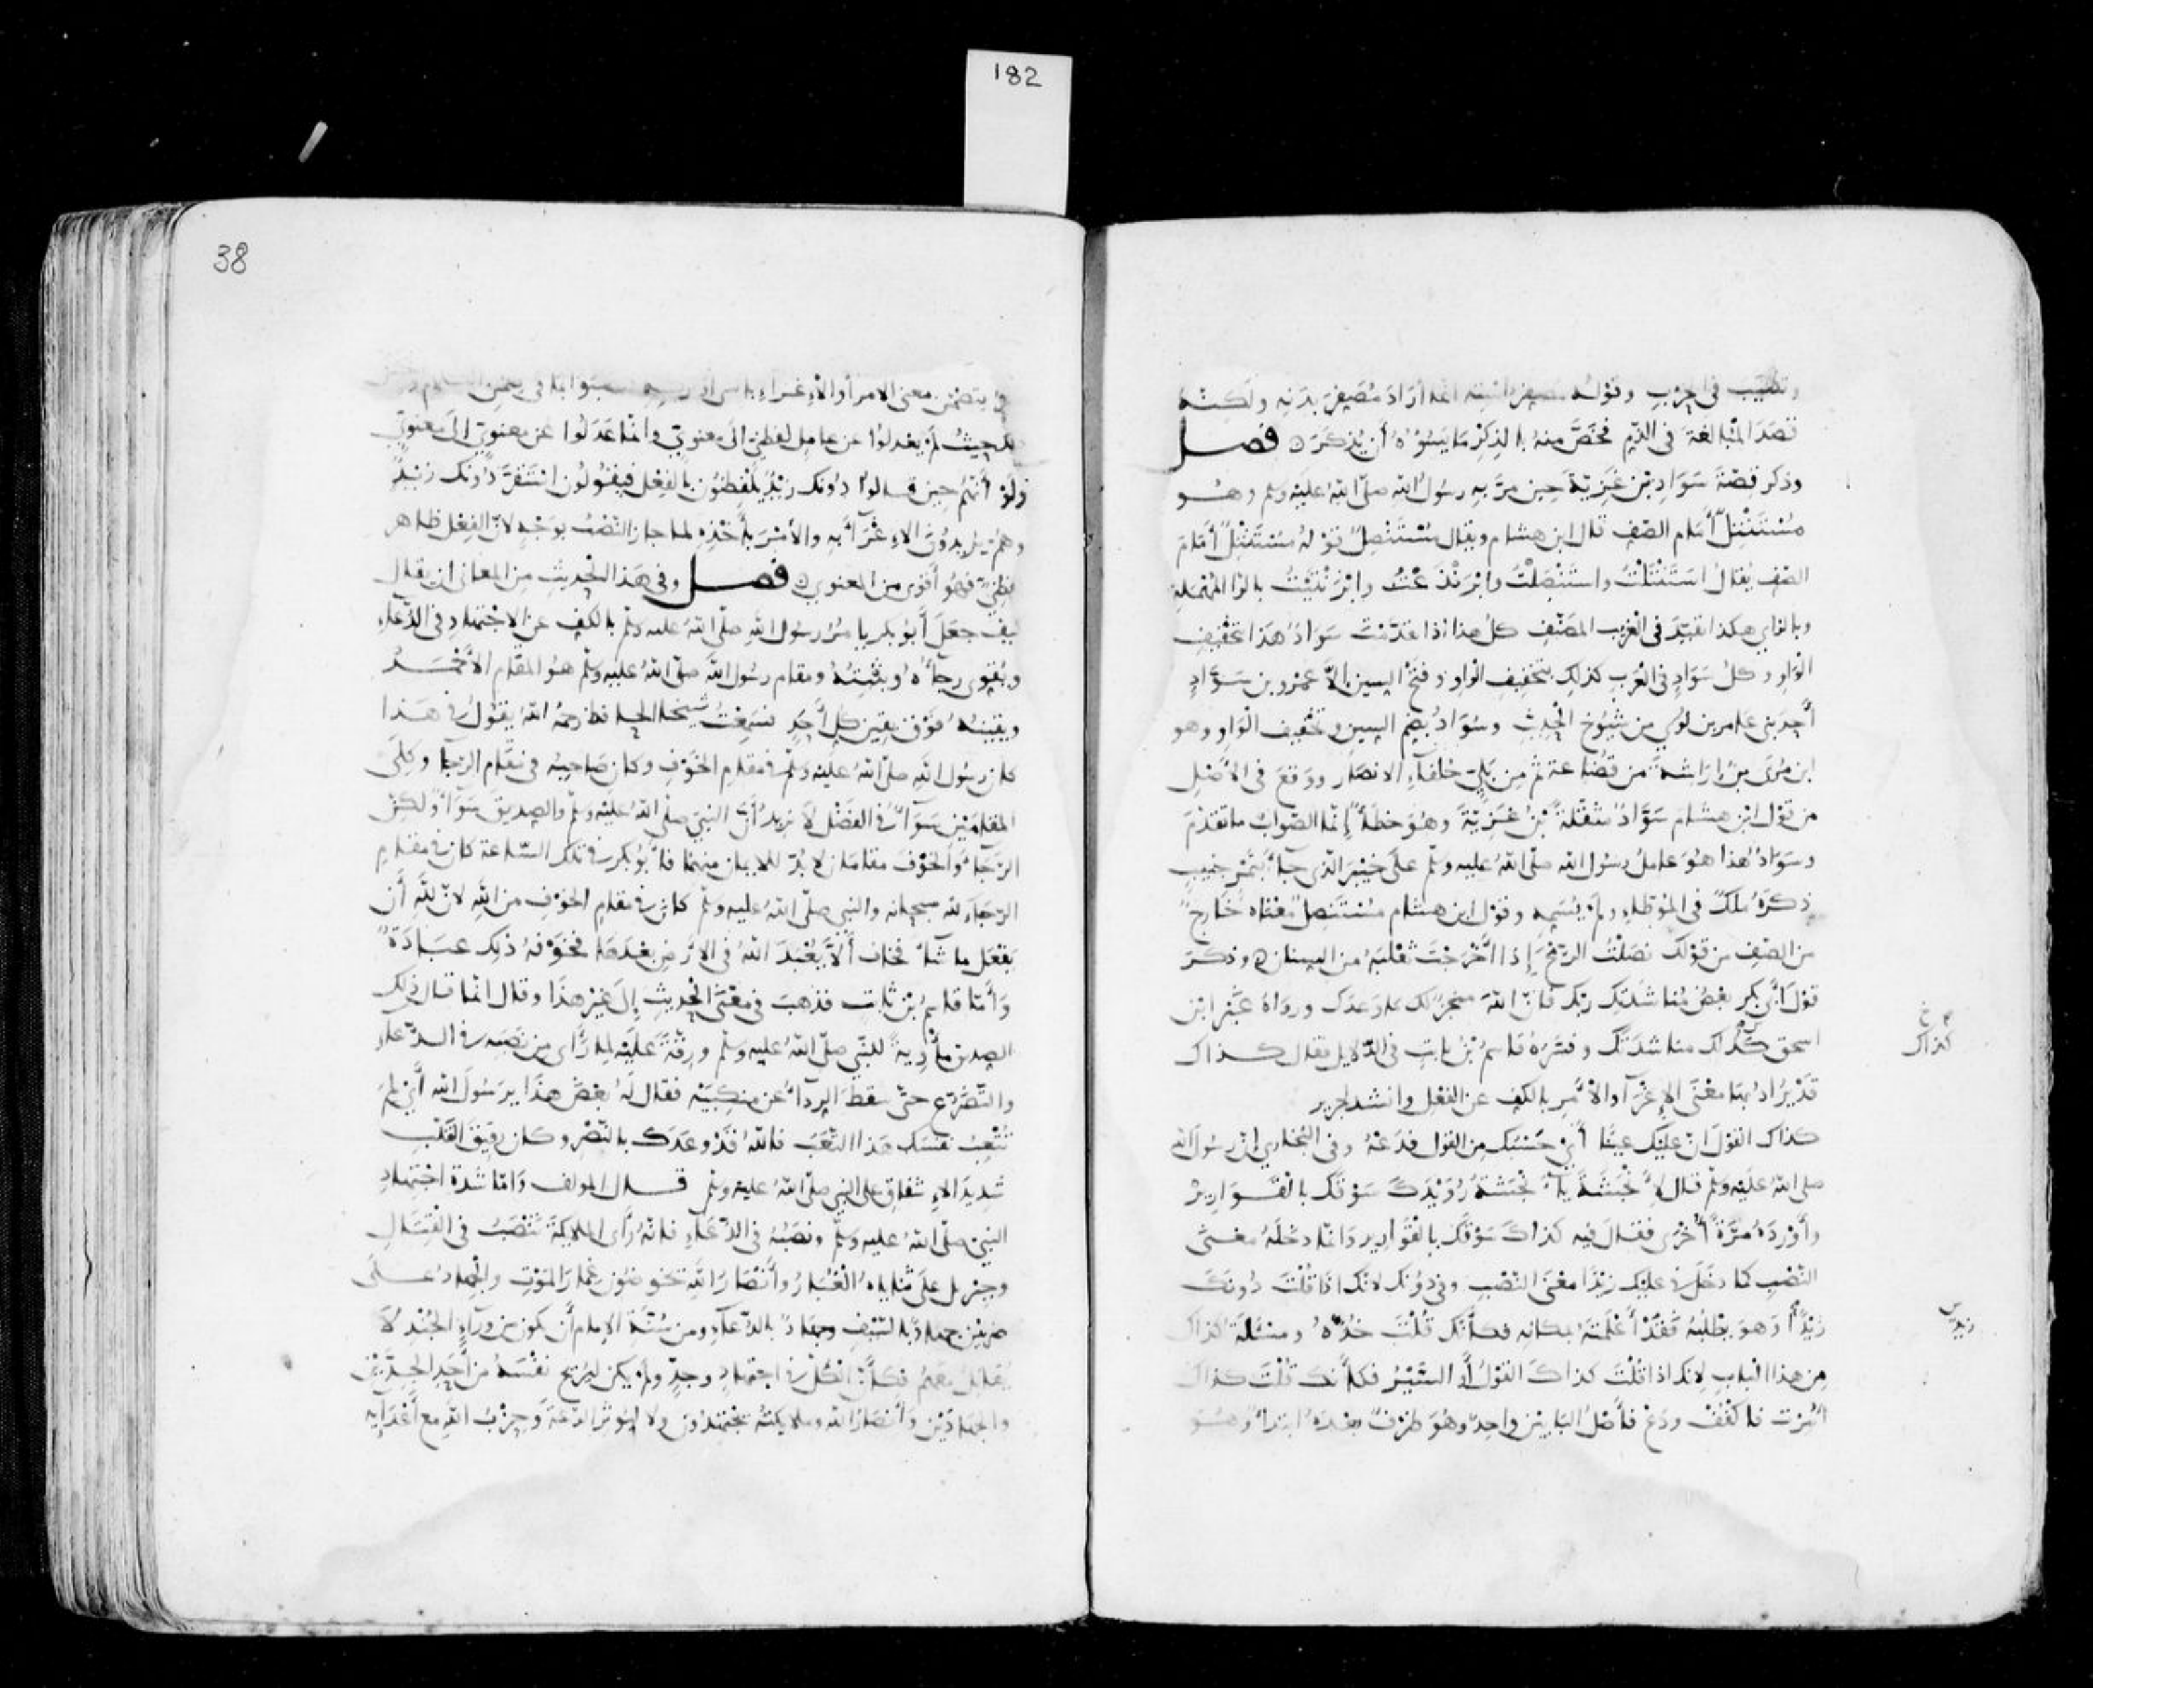 182
وتطيب في الحرب وقوله مصفر استه انما أراد مصفر بدنه ولكنه
قصد المبالغة في الذم فخص منه بالذكر ما يسوؤه أن يذكر فصل
وذكر قصة سواد بن غزية حين مر به رسول الله صلى الله عليه وسلم وهو
مستنتل أمام الصف قال ابن هشام ويقال مستنصل قوله مستنتل أمام
الصف يقال استنتلت واستنصلت وابرنذعت وابرنتيت بالرا المهملة
وبالزاي هكذا تقيد في الغريب المصنف كل هذا اذا تقدمت سواد هذا بتخفيف
الواو وكل سواد في العرب كذلك بتخفيف الواو وفتح السين إلا عمرو بن سواد
أحد بني عامر بن لوي من شيوخ الحديث وسواد بضم السين وتخفيف الواو وهو
ابن مرى بن اراشة من قضاعة ثم من بلي حلفاء الانصار ووقع في الأصل
من قول ابن هشام سواد مثقلة بن غزية وهو خطأ إنما الصواب ما تقدم
وسواد هذا هو عامل رسول الله صلى الله عليه وسلم على خيبر الذي جاء بتمر جنيب
ذكره ملك في الموطاء ولم يسمه وقول ابن هشام مستنصل معناه خارج
من الصف من قولك نصلت الرمح إذا أخرجت ثعلبه من السنان وذكر
قول أبي بكر بعض مناشدتك ربك فان الله منجز لك ما وعدك ورواه غير ابن
اسحق كذاك مناشدتك وفسره قاسم بن ثابت في الدلايل فقال كذاك
كذاك
قد يراد بها معنى الإغرآ والأمر بالكف عن الفعل وانشد لجرير
كذاك القول ان عليك عينا أي حسبك من القول فدعه وفي البخاري ان رسول الله
صلى الله عليه وسلم قال لأنجشة يا أنجشة رويدك سوقك بالقوارير
وأورده مرة أخرى فقال فيه كذاك سوقك بالقوارير وانما دخله معنى
النصب كما دخل في عليك زيدا معنى النصب وفي دونك لانك اذا قلت دونك
زيد
زيد أو هو يطلبه فقد أعلمته بمكانه فكأنك قلت خذه ومسئلة كذاك
من هذا الباب لانك اذا قلت كذاك القول أو السير فكأنك قلت كذاك
أمرت فاكفف ودع فأصل البابين واحد وهو ظرف بعده ابتداء وهو
38
يتضمن معنى الامر أو الاغراء
لم يعدلوا عن عامل لفظي الى معنوي وانما عدلوا عن معنوي الى معنوي
ولو أنهم حين قالوا دونك زيد يلفظون بالفعل فيقولون استقر دونك زيد
وهم يريدون الاغرآء به والأمر بأخذه لما جاز النصب بوجه لان الفعل ظاهر
لفظي فهو أقوى من المعنوي فصل وفي هذا الحديث من المعاني ان يقال
كيف جعل أبو بكر يامر رسول الله صلى الله عليه وسلم بالكف عن الاجتهاد في الدعاء
ويقوي رجآءه ويثبته ومقام رسول الله صلى الله عليه وسلم هو المقام الأحمد
ويقينه فوق يقين كل أحد فسمعت شيخنا الحافظ رحمه الله يقول في هذا
كان رسول الله صلى الله عليه وسلم في مقام الخوف وكان صاحبه في مقام الرجا وكلى
المقامين سوآء في الفضل لا نريد أن النبي صلى الله عليه وسلم والصديق سوآء ولكن
الرجاء والخوف مقامان لا بد للايمان منهما فابو بكر في تلك الساعة كان في مقام
الرجاء لله سبحانه والنبي صلى الله عليه وسلم كان في مقام الخوف من الله لان لله أن
يفعل ما شاء فخاف ألا يعبد الله في الارض بعدها فخوفه ذلك عبادة
وأما قاسم بن ثابت فذهب في معنى الحديث إلى غير هذا وقال انما قال ذلك
الصديق مأوية للنبي صلى الله عليه وسلم ورقة عليه لما رأى من نصبه في الدعاء
والتضرع حتى سقط الردآء عن منكبيه فقال له بعض هذا يرسول الله أي لم
تتعب نفسك هذا التعب فالله قد وعدك بالنصر وكان رقيق القلب
شديد الاشفاق على النبي صلى الله عليه وسلم قال المولف واما شدة اجتهاد
النبي صلى الله عليه وسلم ونصبه في الدعاء فانه رأى الملايكة تنصب في القتال
وجبريل على ثناياه الغبار وأنصار الله يخوضون غمار الموت والجهاد على
ضربين جهاد بالسيف وجهاد بالدعاء ومن سنة الامام أن يكون من ورآء الجند لا
يقاتل معهم فكان الكل في اجتهاد وجد ولم يكن ليريح نفسه من أحد الجدين
والجهادين وأنصار الله وملايكته يجتهدون ولا ليوثر الدعة وحزب الله مع أعدآيه